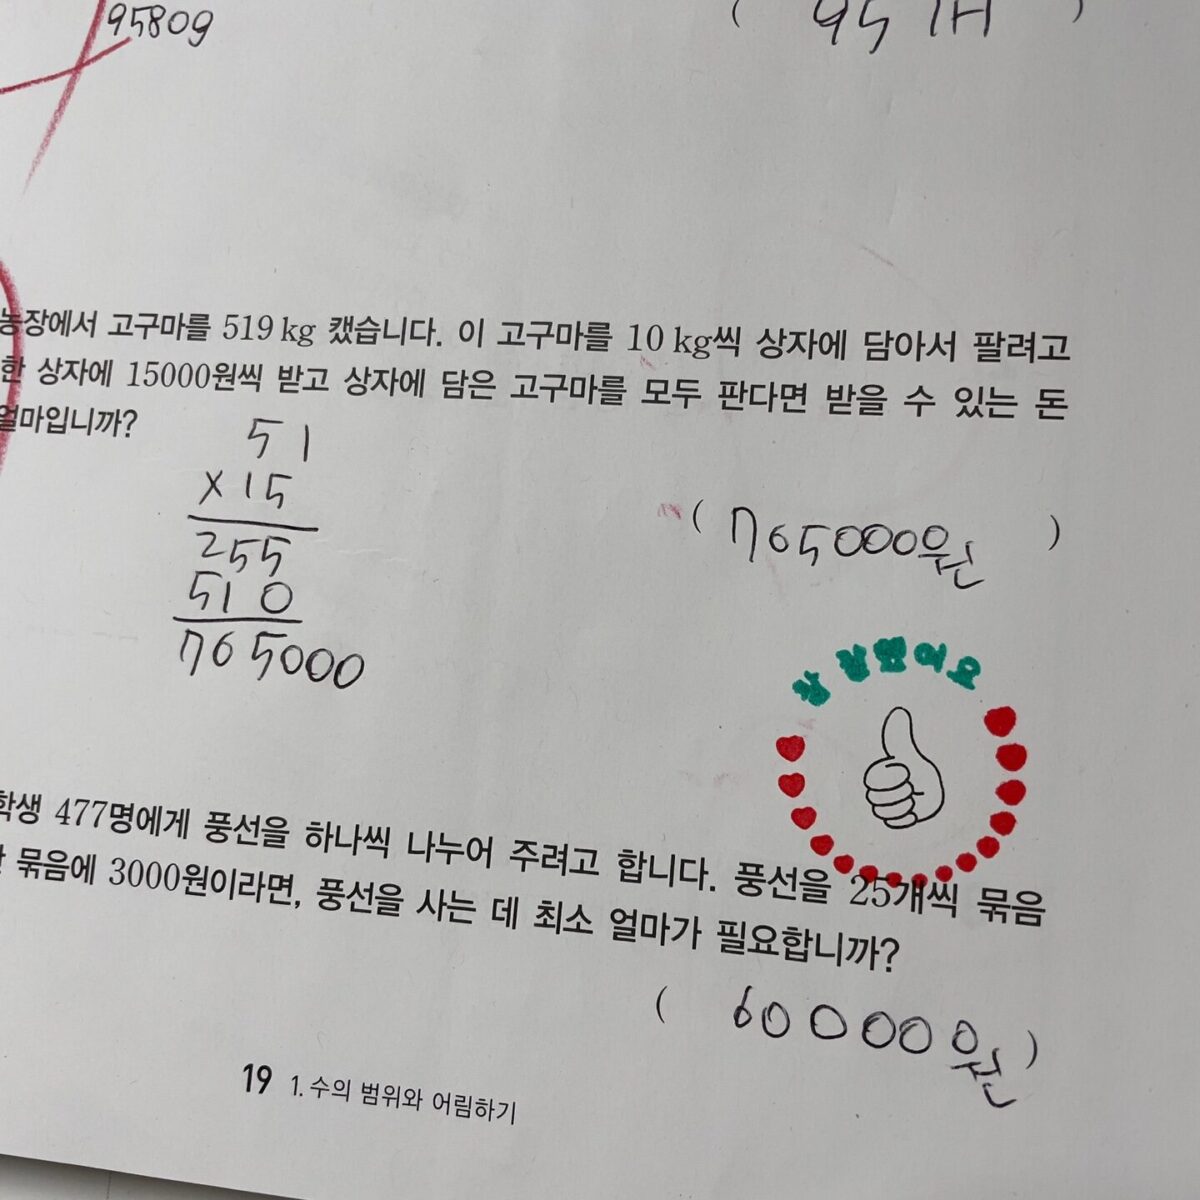 95809
농장에서 고구마를 519 kg 캤습니다. 이 고구마를 10 kg씩 상자에 담아서 팔려고
한 상자에 15000원씩 받고 상자에 담은 고구마를 모두 판다면 받을 수 있는 돈
얼마입니까?
51
×15
255
510
765000
( 765000원 )
참 잘했어요
학생 477명에게 풍선을 하나씩 나누어 주려고 합니다. 풍선을 25개씩 묶음
묶음에 3000원이라면, 풍선을 사는 데 최소 얼마가 필요합니까?
( 60000원 )
19 1. 수의 범위와 어림하기